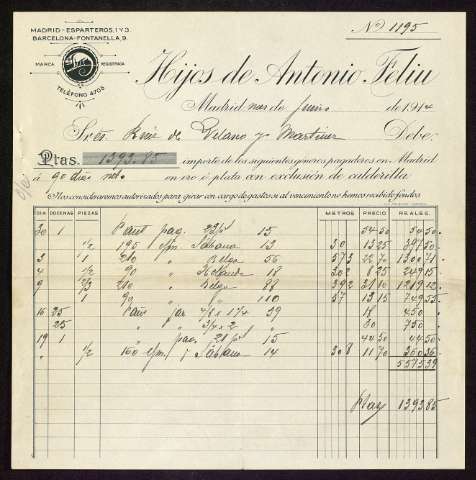 MADRID-ESPARTEROS, 1 Y 3.
BARCELONA-FONTANELLA, 9.
MARCA REGISTRADA
TELÉFONO 4705
Nº 1195
Hijos de Antonio Feliu
Madrid mes de Junio de 1914
Sres. Ruiz de Velasco y Martinez Debe:
Ptas. 1393,85 importe de los siguientes géneros pagaderos en Madrid
á 90 dias en oro ó plata con exclusión de calderilla.
Nos consideraremos autorizados para girar con cargo de gastos si al vencimiento no hemos recibido fondos
DIA DOCENAS PIEZAS METROS PRECIO REALES
30 1 pag. 15 54 50 54 50
1/2 195 c/m Sabana 13 30 13 25 397 50
3 1 " Belga 56 57 3 22 70 1300 71
4 1/2 90 " Holanda 18 30 2 8 25 249 15
9 2/3 210 " Belga 88 39 2 31 10 1219 12
1 90 " " 110 57 13 15 749 55
16 25 par 4/8 x 1 1/4 29 18 450
" 25 " " 3/4 x 2 " 30 750
19 1 " pag. 15 44 50 44 50
" 1/2 160 c/m Sabana 14 30 8 11 70 360 36
5575 39
Ptas 1393 85